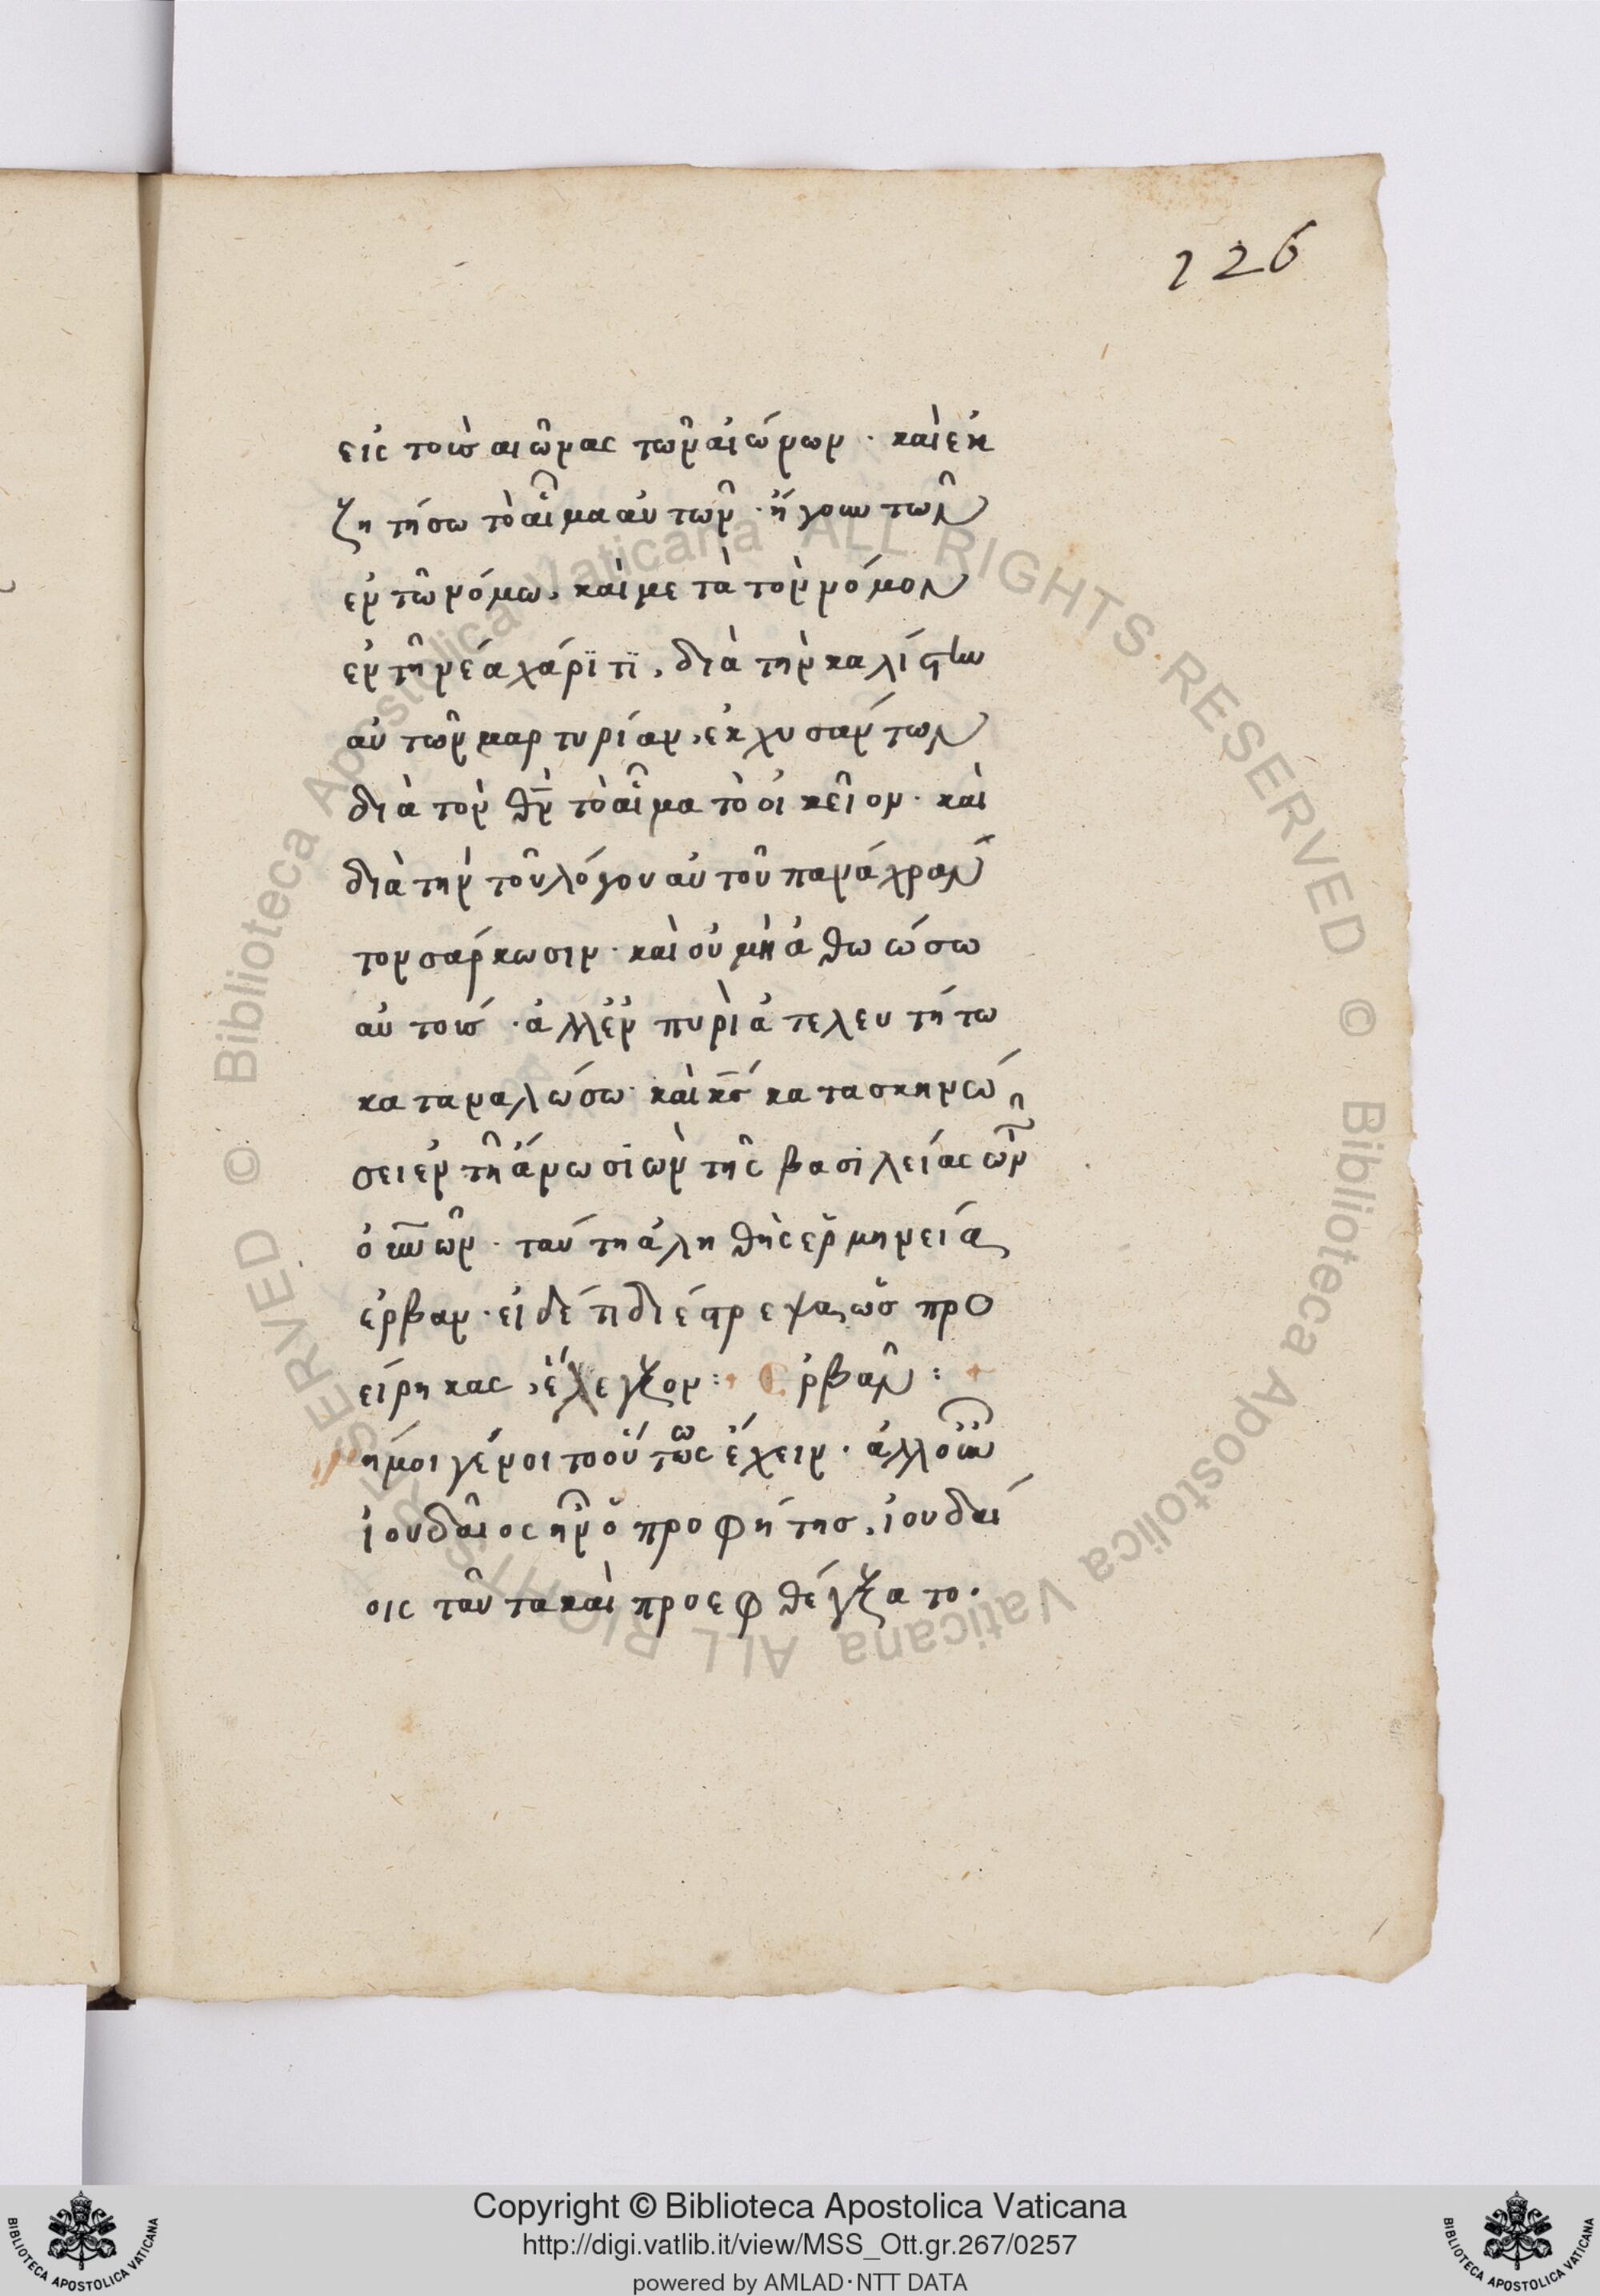 226
εἰς τοὺς αἰῶνας τῶν αἰώνων · καὶ ἐκ
ζητήσω τὸ αἷμα αὐτῶν · ἤγουν τῶν
ἐν τῶ νόμω, καὶ μετὰ τὸν νόμον
ἐν τῆ νέα χάρϊτϊ, διὰ τὴν καλίστην
αὐτῶν μαρτυρίαν, ἐκχυσάντων
διὰ τὸν θν τὸ αἷμα τὸ οἰκεῖον · καὶ
διὰ τὴν τοῦ λόγου αὐτοῦ πανάχραν
τον σάρκωσιν · καὶ οὐ μὴ ἀθωώσω
αὐτούς · ἀλλ' ἐν πυρὶ ἀτελευτήτω
καταναλώσω · καὶ κς κατασκηνώ
σει ἐν τῆ ἄνω σιὼν τῆς βασιλείας ὢν
ὁ ὤν · ταύτη ἀληθὴς ἑρμηνεία
ἑρβαν · εἰ δέ τι διέστρεψας ὡς προ
είρηκας, ἔλεγξον : Ερβαν :
η μοι γένοιτο οὕτως ἔχειν · ἀλλ' οὖν
ἰουδαῖος ἦν ὁ προφήτης, ἰουδαί
οις ταῦτα καὶ προεφθέγξατο.
© Biblioteca Apostolica Vaticana ALL RIGHTS RESERVED © Biblioteca Apostolica Vaticana ALL RIGHTS RESERVED
Copyright © Biblioteca Apostolica Vaticana
http://digi.vatlib.it/view/MSS_Ott.gr.267/0257
powered by AMLAD·NTT DATA
BIBLIOTECA APOSTOLICA VATICANA
BIBLIOTECA APOSTOLICA VATICANA